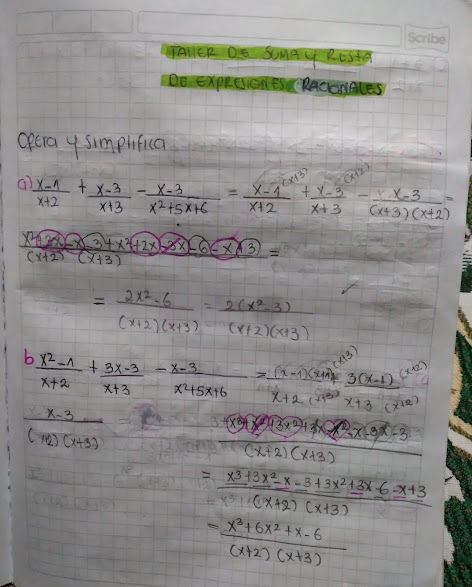 Scribe
TALLER DE SUMA Y RESTA
DE EXPRESIONES RACIONALES
Opera y simplifica
a) x-1/x+2 + x-3/x+3 - x-3/x²+5x+6 = x-1/x+2 (x+3) + x-3/x+3 (x+2) - x-3/(x+3)(x+2) =
x²+3x-x-3+x²+2x-3x-6-x+3/(x+2)(x+3) =
= 2x²-6/(x+2)(x+3) = 2(x²-3)/(x+2)(x+3)
b x²-1/x+2 + 3x-3/x+3 - x-3/x²+5x+6 = (x-1)(x+1)(x+3)/x+2 (x+3) + 3(x-1)(x+2)/x+3 (x+2)
x-3/(x+2)(x+3) =
(x+2)(x+3)
= x³+3x²-x-3+3x²+3x-6-x+3/(x+2)(x+3)
= x³+6x²+x-6/(x+2)(x+3)